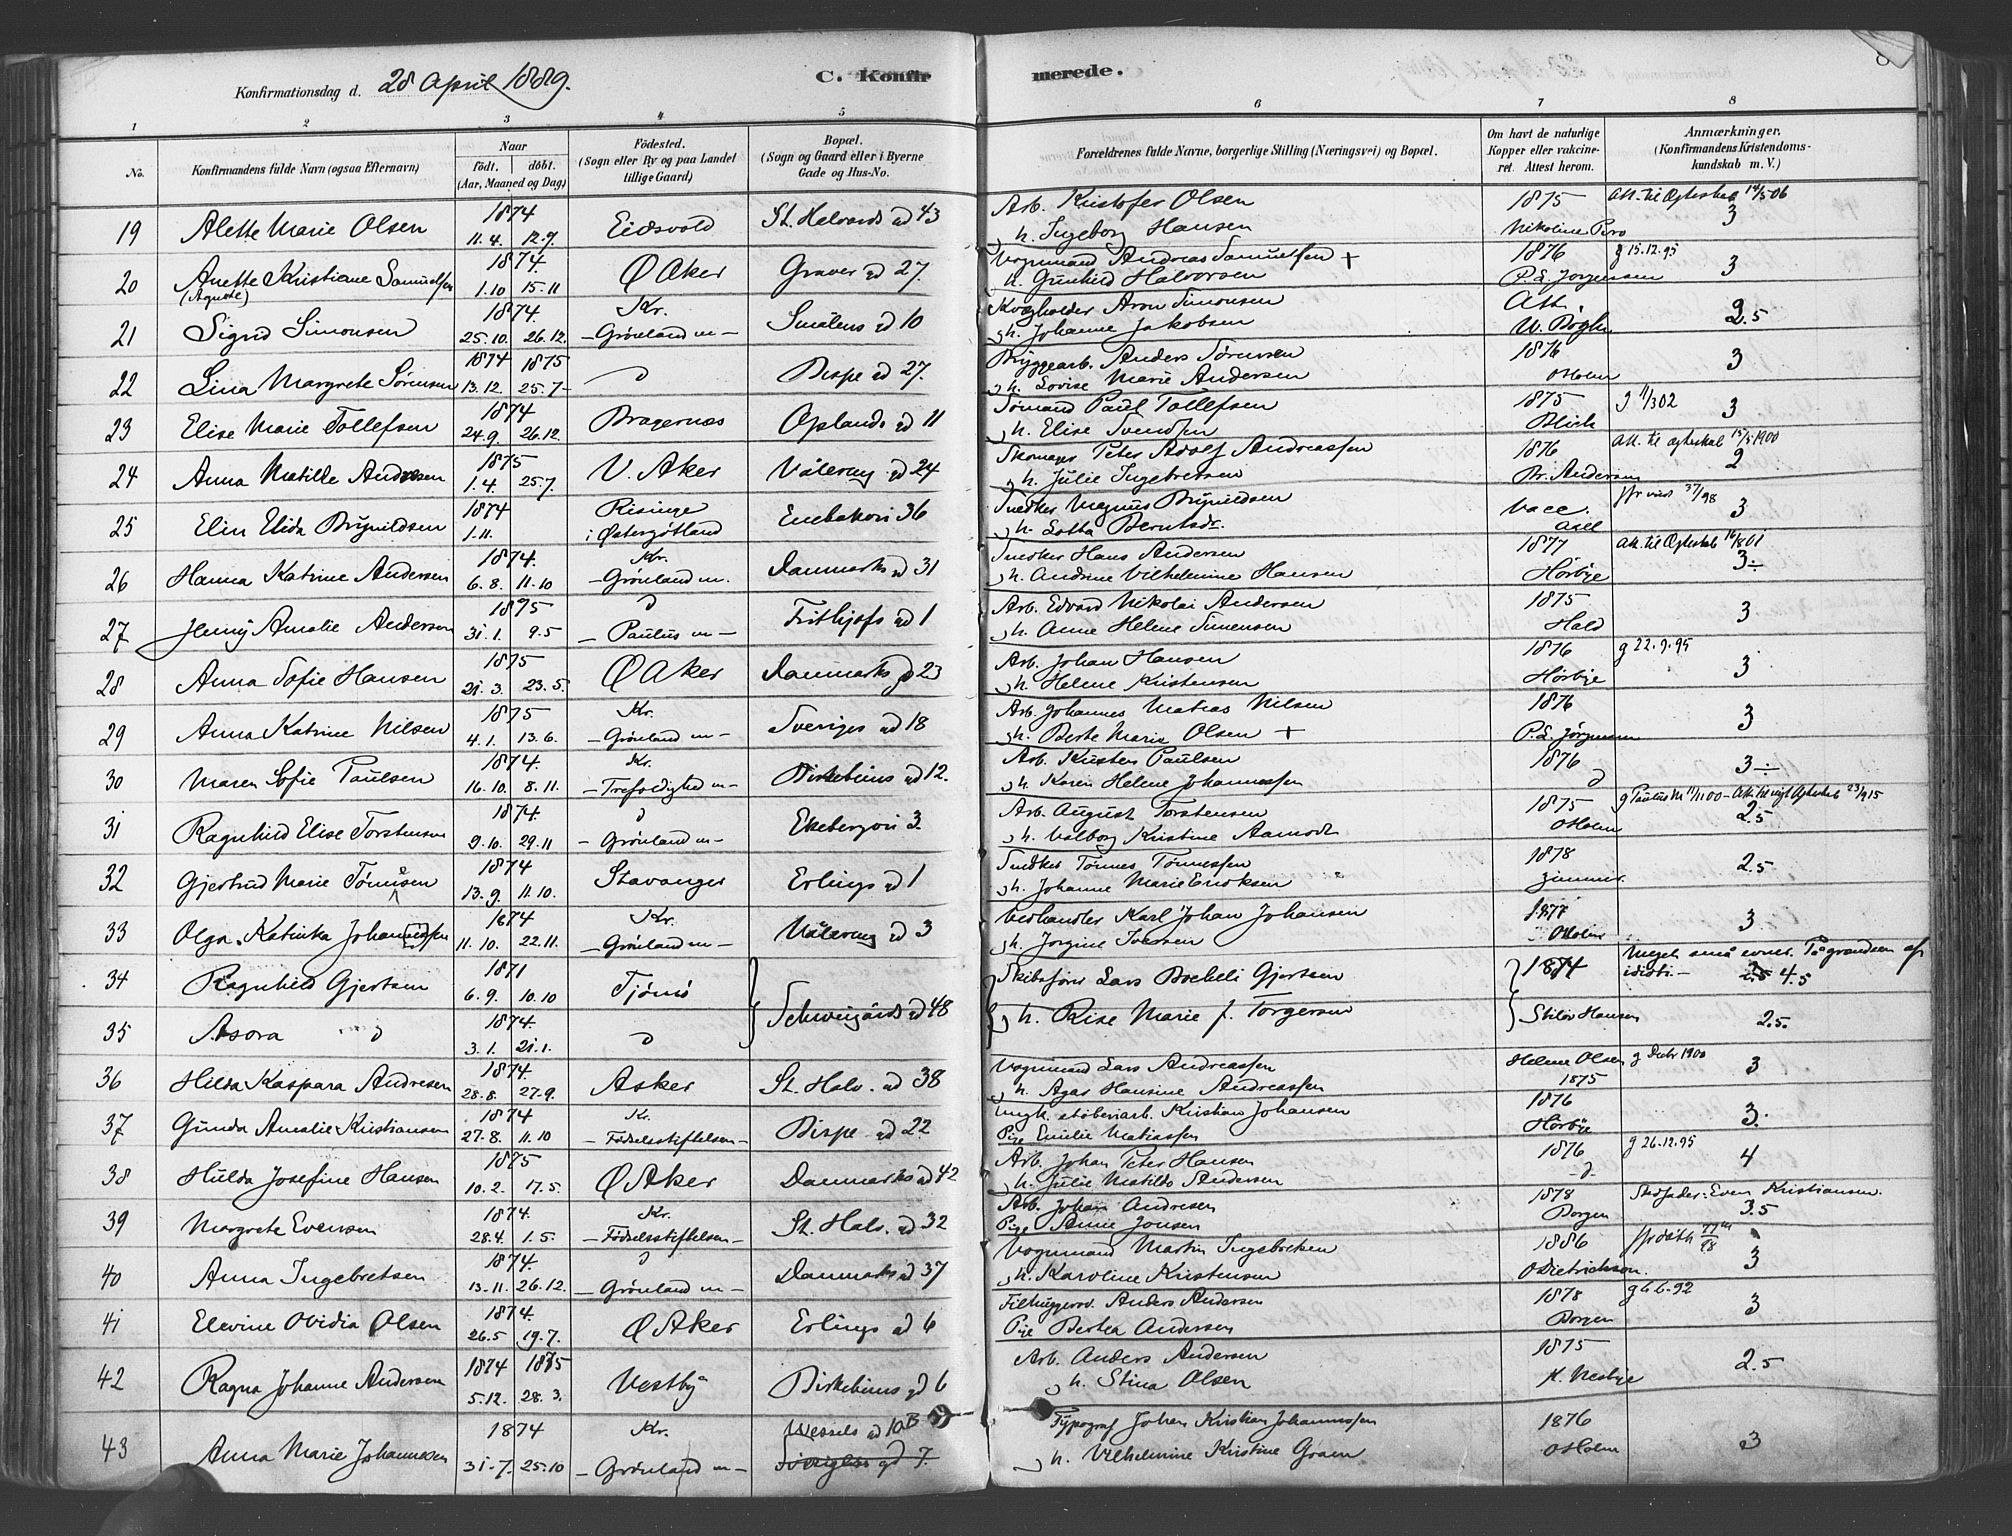 Konfirmationsdag d. 28 April 1889.
C. Konfirmerede.
1 2 3 4 5 6 7 8
No.
Konfirmandens fulde Navn (ogsaa Efternavn)
Naar
Født. døbt.
(Aar, Maaned og Dag)
Fødested.
(Sogn eller By og paa Landet
tillige Gaard)
Bopæl.
(Sogn og Gaard eller i Byerne
Gade og Hus-No.
Forældrenes fulde Navne, borgerlige Stilling (Næringsvei) og Bopæl.
Om havt de naturlige
Kopper eller vaccine-
ret. Attest herom.
Anmærkninger.
(Konfirmandens Kristendoms-
kundskab m. V.)
19 Alette Marie Olsen 1874 11.4. 12.7. Eidsvold St. Halvards gd 43 Arb. Kristofer Olsen
h. Ingeborg Hansen 1875 Nikoline Att. til Ægteskab 14/5 06 3
20 Anette Kristiane Samuelsen (Agnete) 1874. 1.10 15.11 Ø Aker Graver gd 27. Vognmand Andreas Samuelsen +
h. Gunhild Halvorsen 1876 P.L. Jørgensen g 15.12.95 3
21 Sigrid Simonsen 1874 25.10. 26.12. Kr. -Grønland m- Smålens gd 10 Kvægholder Aron Simonsen
h. Johanne Jakobsen Att. 2.5
22 Lina Margrete Sørensen 1874 1875 13.12 25.7- d Bispe gd 27. Bryggearb. Anders Sørensen
h. Lovise Marie Andersen 1876 O Holm 3
23 Elise Marie Tollefsen 1874 24.9. 26.12. Bragernæs Oplands gd 11 Sømand Paul Tollefsen
h. Elise Svendsen 1875 Blich g 11/3 02 3
24 Anna Matilde Andresen 1875 1.4. 25.7. V. Aker Vålereng gd 24 Skomager Peter Adolf Andreassen
h. Julie Ingebretsen 1876 Br. Andersen Att. til ægteskab 15/5 1900 2
25 Elin Elida Brynildsen 1874 1.11. Risinge i Østergøtland Enebakvei 36 Snedker Magnus Brynildsen
h. Lotta Berntsdr. vacc. Axel 3
26 Hanna Katrine Andersen 1874. 6.8. 11.10 Kr. -Grønland m. Danmarks gd 31 Snedker Hans Andersen
h. Andrine Vilhelmine Hansen 1877 Hørbye Att. til Ægteskab 16/8 01 3÷
27 Jenny Amalie Andersen 1875 31.1. 9.5 d -Paulus m- Frithjofs gd 1 Arb. Edvard Nikolai Andersen
h. Anne Helene Simensen 1875 Hald 3
28 Anna Sofie Hansen 1875 21.3. 23.5. Ø Aker Danmarks gd 23 Arb. Johan Hansen
h. Helene Kristensen 1876 Hørbye g 22.9.95 3
29 Anna Katrine Nilsen 1875 4.1. 13.6. Kr. -Grønland m- Sveriges gd 18 Arb. Johannes Matias Nilsen
h. Berte Marie Olsen + 1876 P.L. Jørgensen 3
30 Maren Sofie Paulsen 1874. 16.10. 8.11. Kr. -Trefoldighed m- Birkebeins gd 12. Arb. Kristen Paulsen
h. Karen Helene Johannessen 1876 d 3÷
31 Ragnhild Elise Torstensen 1874 9.10. 29.11 d -Grønland m- Ekebergvei 3. Arb. August Torstensen
h. Valborg Kristine Aamodt 1875 O Holm 2.5
32 Gjertrud Marie Tønnesen 1874 13.9. 11.10. Stavanger Erlings gd 1 Snedker Tønnes Tønnessen
h. Johanne Marie Eriksen 1878 Zimmer. 2.5
33 Olga Katinka Johannessen 1874 11.10. 22.11. Kr. -Grønland m- Vålereng gd 3 Vedhandler Karl Johan Johansen
h. Jorgine Iversen 1877 O Holm 3
34 Ragnhild Gjertsen 1871 6.9. 10.10 Tjømø Schweigårds gd 48 Skibsfører Lars Gjertsen 1874 Meget små evner. På grund af
idioti.- 2.5 4.5
35 Asora d 1874. 3.1. 21.1. d h. Rise Marie f. Torgersen Stiløv Hansen 2.5.
36 Hilda Kaspara Andresen 1874. 28.8. 27.9. Asker St. Halv. gd 38 Vognmand Lars Andreassen
h. Agar Hansine Andreassen Helene Olsen 1875 g Debr 1900 3
37 Gunda Amalie Kristiansen 1874 27.8. 11.10 Kr. -Fødselsstiftelsen- Bispe gd 22 Ungk. støberiarb. Kristian Johansen
Pige Emilie Matiassen 1876 Hørbye 3.
38 Hulda Josefine Hansen 1875 10.2. 17.5. Ø Aker Danmarks gd 42 Arb. Johan Peter Hansen
h. Julie Matilde Andersen 1876 -d- g 26.12.95 4
39 Margrete Evensen 1874. 28.4. 1.5. Kr. -Fødselsstiftelsen- St. Halv. gd 32 Arb. Johan Andresen
Pige Anne Jonsen 1878 Borgen Stedfader: Even Kristiansen. 3.5
40 Anna Ingebretsen 1874. 13.11. 26.12. d -Grønland m- Danmarks gd 37 Vognmand Martin Ingebretsen
h. Karoline Kristensen 1886 O Dietrichson. 3
41 Elevine Ovidia Olsen 1874. 26.5 19.7. Ø Aker Erlings gd 6 Filhuggersv. Anders Andersen
Pige Berthea Andersen 1878 Borgen g 6.6.92 3
42 Ragna Johanne Andersen 1874 1875 5.12. 28.3. Vestby Birkebeins gd 6 Arb. Anders Andersen
h. Stina Olsen 1875 K. Nesbye 2.5
43 Anna Marie Johannessen 1874 31.7. 25.10 Kr. -Grønland m- Wessels gd 10B Sveriges gd 7. Typograf Johan Kristian Johannessen
h. Vilhelmine Kristine Gram 1876 O Holm 3